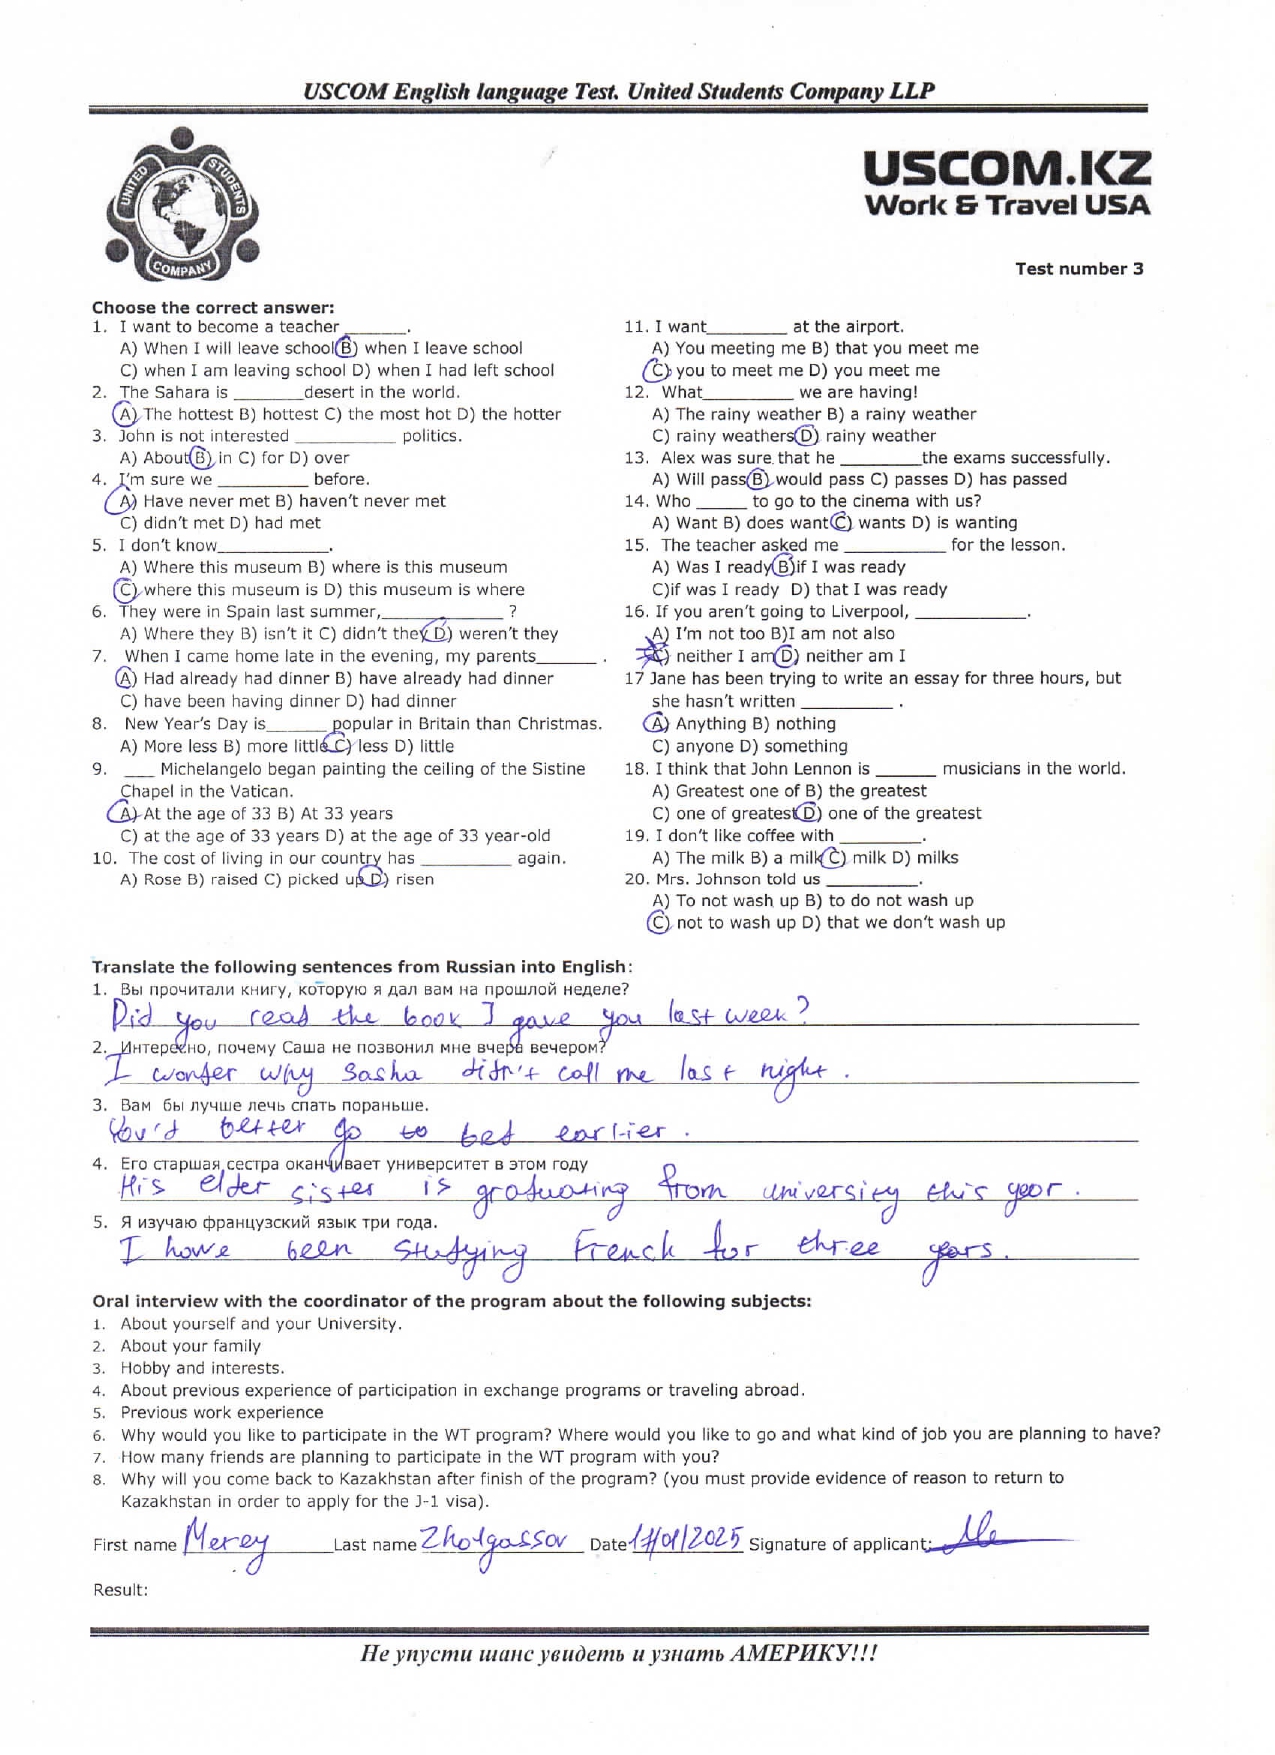 USCOM English language Test. United Students Company LLP
UNITED STUDENTS COMPANY
USCOM.KZ
Work & Travel USA
Test number 3
Choose the correct answer:
1. I want to become a teacher ______.
A) When I will leave school B) when I leave school
C) when I am leaving school D) when I had left school
2. The Sahara is ______desert in the world.
A) The hottest B) hottest C) the most hot D) the hotter
3. John is not interested _________ politics.
A) About B) in C) for D) over
4. I'm sure we ________ before.
A) Have never met B) haven't never met
C) didn't met D) had met
5. I don't know__________.
A) Where this museum B) where is this museum
C) where this museum is D) this museum is where
6. They were in Spain last summer,___________ ?
A) Where they B) isn't it C) didn't they D) weren't they
7. When I came home late in the evening, my parents______ .
A) Had already had dinner B) have already had dinner
C) have been having dinner D) had dinner
8. New Year's Day is______ popular in Britain than Christmas.
A) More less B) more little C) less D) little
9. ___ Michelangelo began painting the ceiling of the Sistine
Chapel in the Vatican.
A) At the age of 33 B) At 33 years
C) at the age of 33 years D) at the age of 33 year-old
10. The cost of living in our country has ________ again.
A) Rose B) raised C) picked up D) risen
11. I want_______ at the airport.
A) You meeting me B) that you meet me
C) you to meet me D) you meet me
12. What________ we are having!
A) The rainy weather B) a rainy weather
C) rainy weathers D) rainy weather
13. Alex was sure that he _______the exams successfully.
A) Will pass B) would pass C) passes D) has passed
14. Who _____ to go to the cinema with us?
A) Want B) does want C) wants D) is wanting
15. The teacher asked me _________ for the lesson.
A) Was I ready B)if I was ready
C)if was I ready D) that I was ready
16. If you aren't going to Liverpool, __________.
A) I'm not too B)I am not also
C) neither I am D) neither am I
17 Jane has been trying to write an essay for three hours, but
she hasn't written ________ .
A) Anything B) nothing
C) anyone D) something
18. I think that John Lennon is ______ musicians in the world.
A) Greatest one of B) the greatest
C) one of greatest D) one of the greatest
19. I don't like coffee with ________.
A) The milk B) a milk C) milk D) milks
20. Mrs. Johnson told us ________.
A) To not wash up B) to do not wash up
C) not to wash up D) that we don't wash up
Translate the following sentences from Russian into English:
1. Вы прочитали книгу, которую я дал вам на прошлой неделе?
Did you read the book I gave you last week?
2. Интересно, почему Саша не позвонил мне вчера вечером?
I wonder why Sasha didn't call me last night.
3. Вам бы лучше лечь спать пораньше.
You'd better go to bed earlier.
4. Его старшая сестра оканчивает университет в этом году
His elder sister is graduating from university this year.
5. Я изучаю французский язык три года.
I have been studying French for three years.
Oral interview with the coordinator of the program about the following subjects:
1. About yourself and your University.
2. About your family
3. Hobby and interests.
4. About previous experience of participation in exchange programs or traveling abroad.
5. Previous work experience
6. Why would you like to participate in the WT program? Where would you like to go and what kind of job you are planning to have?
7. How many friends are planning to participate in the WT program with you?
8. Why will you come back to Kazakhstan after finish of the program? (you must provide evidence of reason to return to
Kazakhstan in order to apply for the J-1 visa).
First name Merey Last name Zholgassov Date 17/01/2025 Signature of applicant:
Result:
Не упусти шанс увидеть и узнать АМЕРИКУ!!!